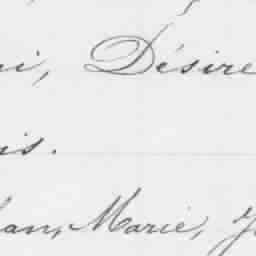 ni, Désire
is.
an, Marie,